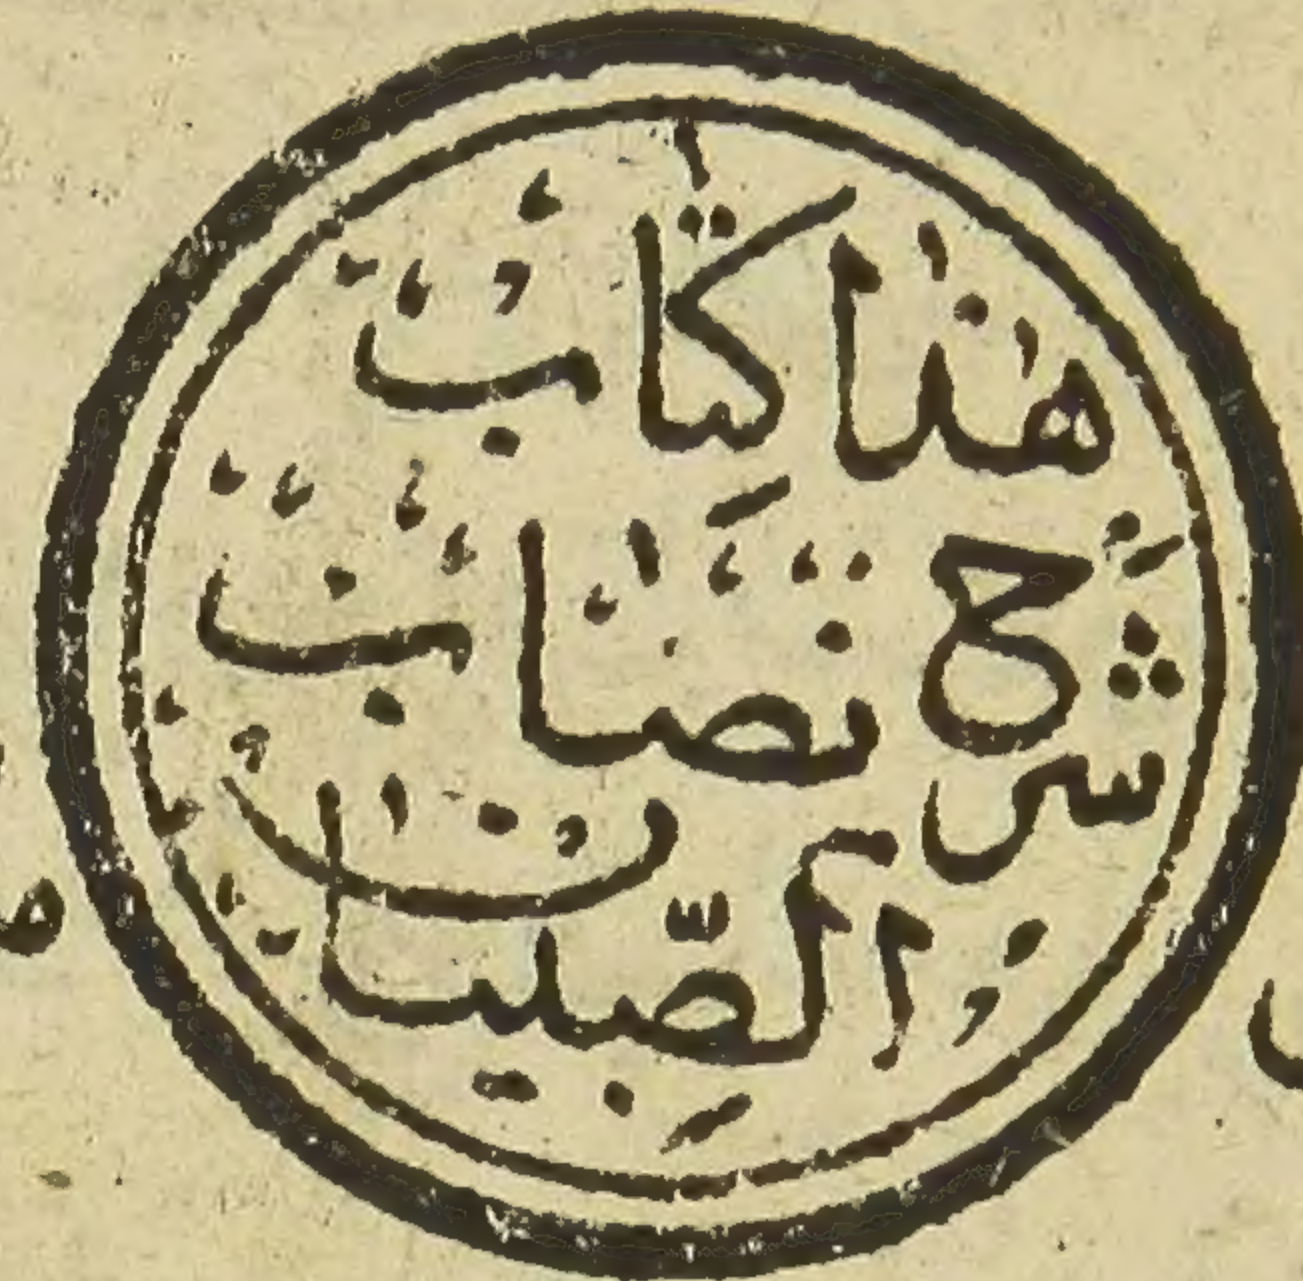 هٰذَا كِتَابُ
شَرْحِ نِصَابْ
الصِّبْيَانْ